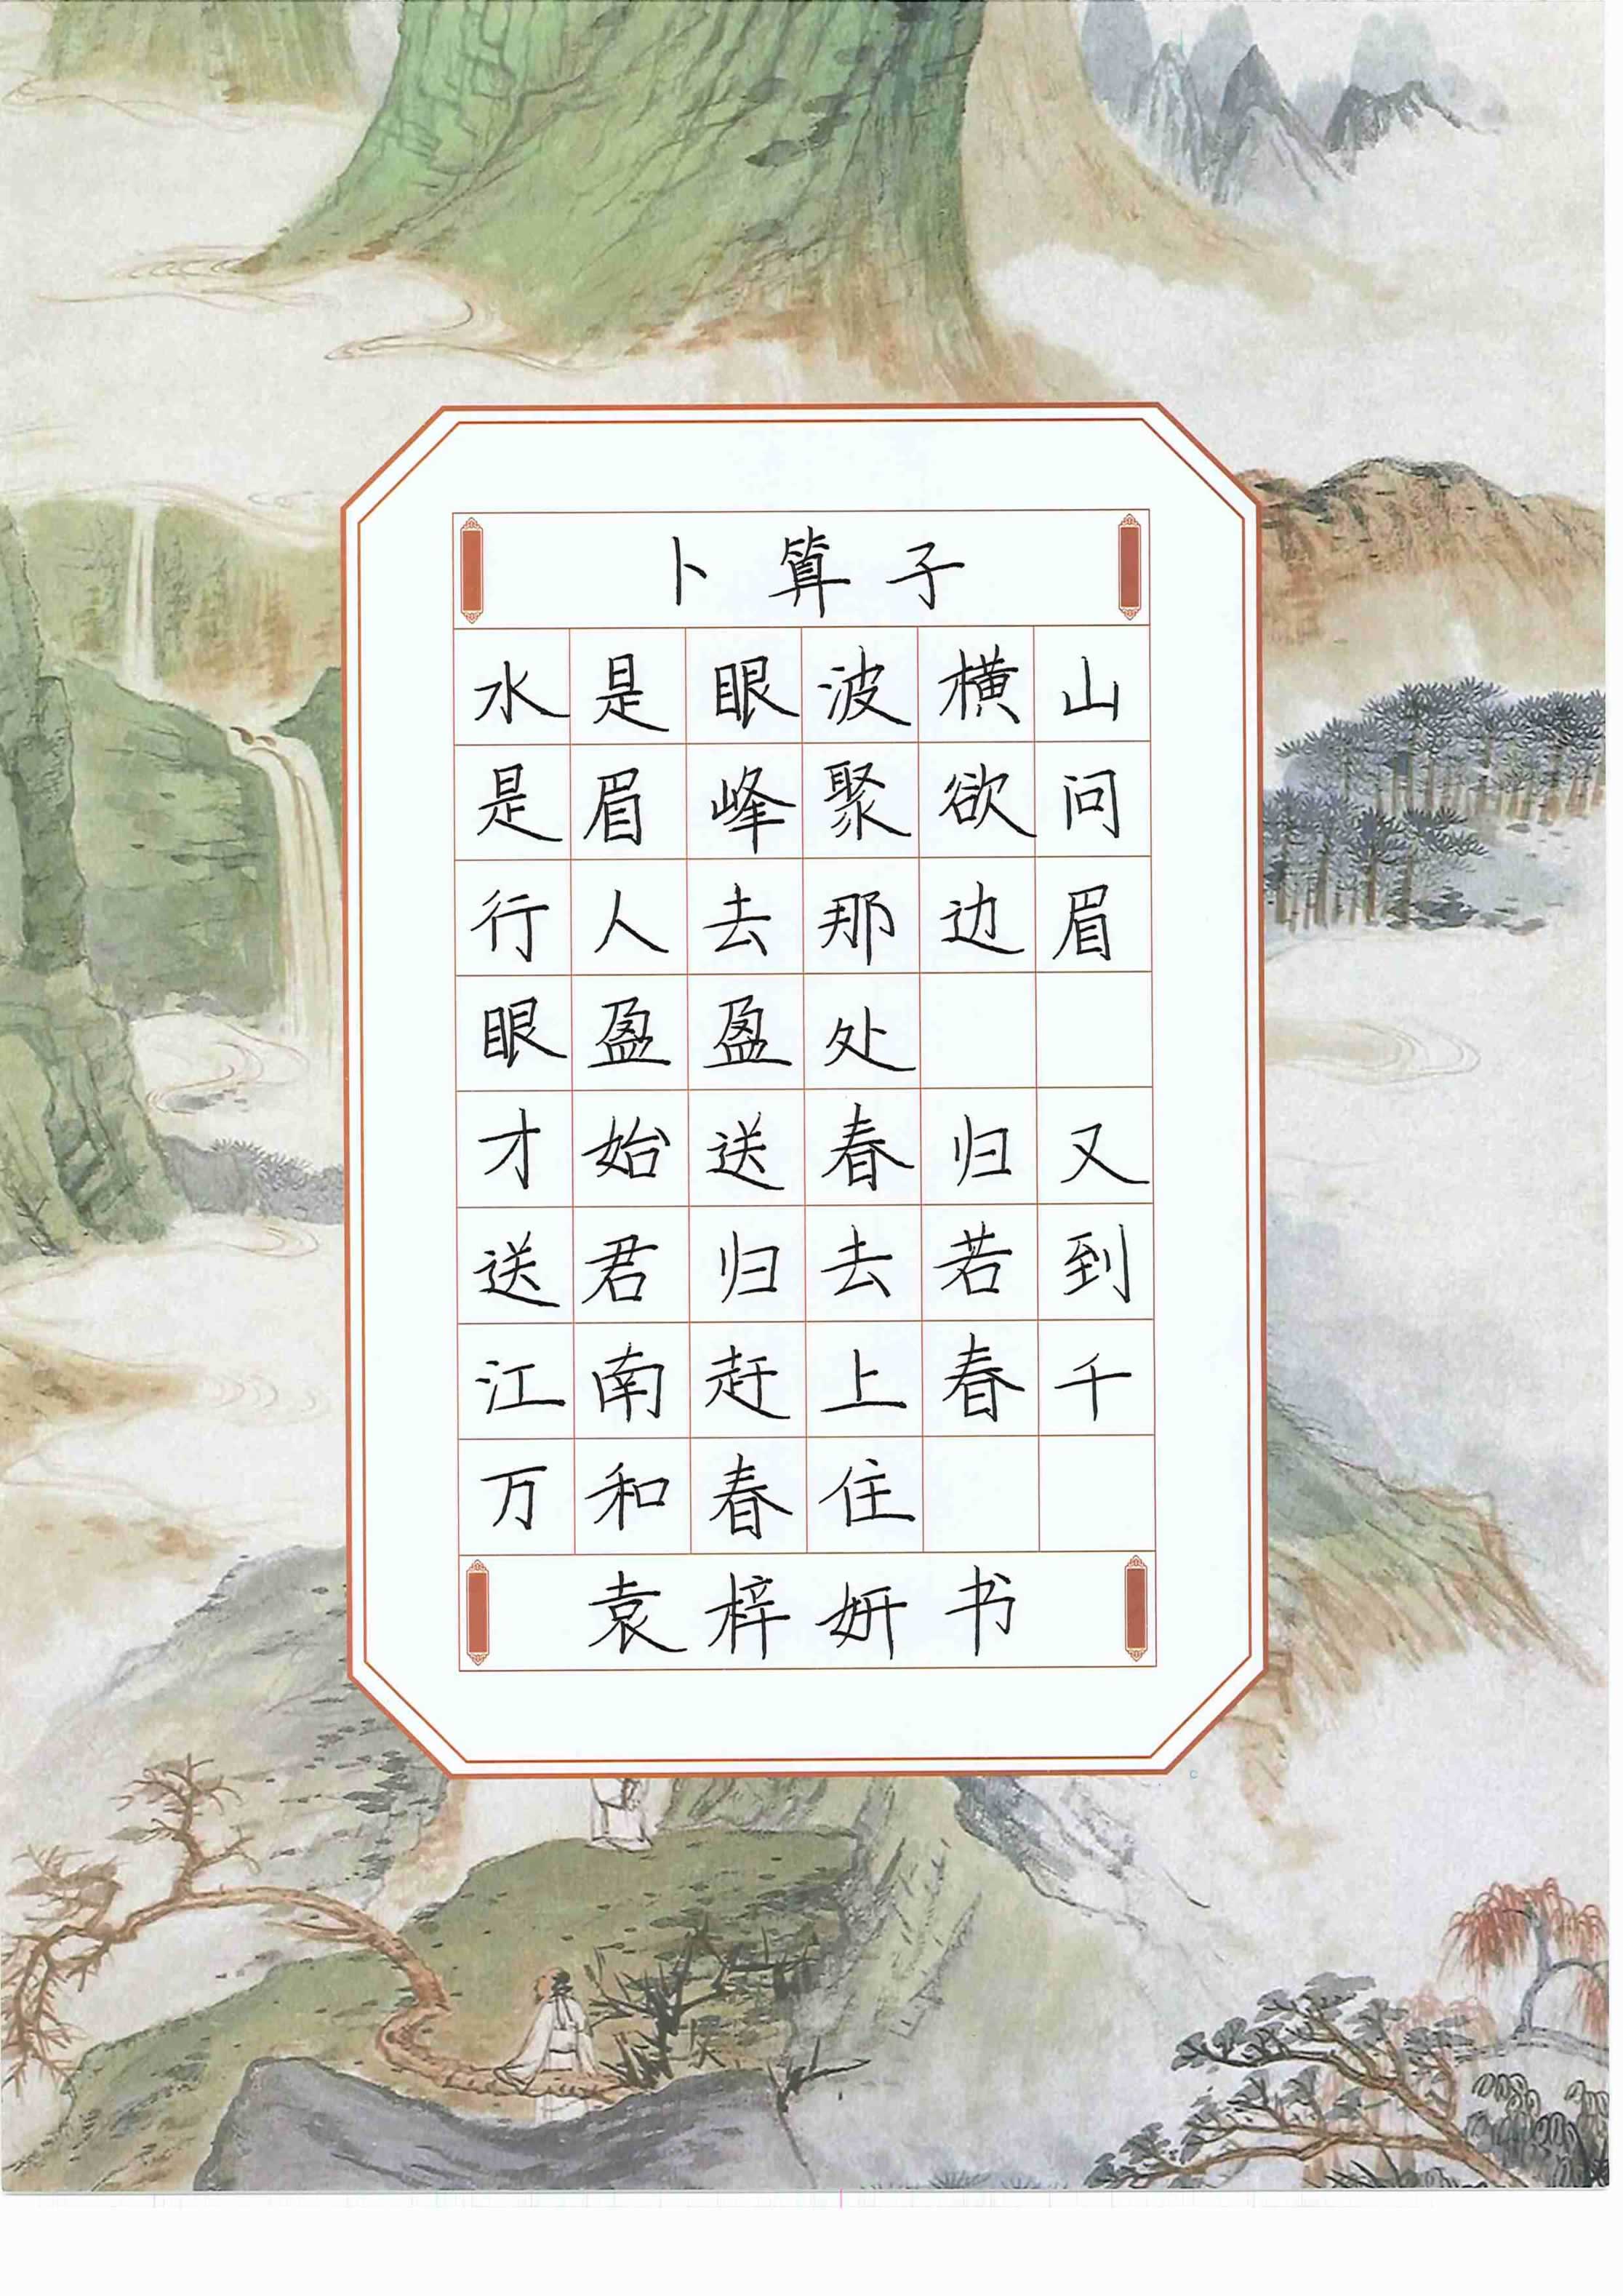 卜算子
水是眼波横山
是眉峰聚欲问
行人去那边眉
眼盈盈处
才始送春归又
送君归去若到
江南赶上春千
万和春住
袁梓妍书